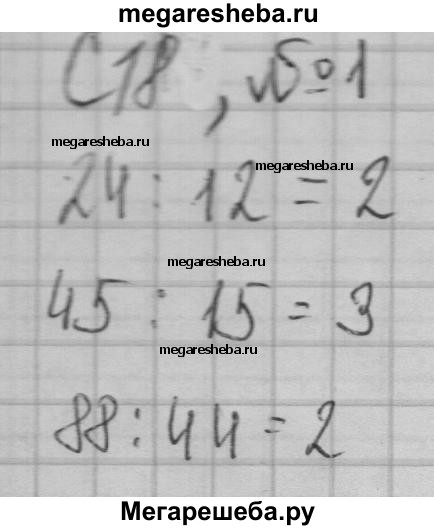 megaresheba.ru
С18, №1
megaresheba.ru
megaresheba.ru
24 : 12 = 2
megaresheba.ru
45 : 15 = 3
megaresheba.ru
88 : 44 = 2
Мегарешеба.ру